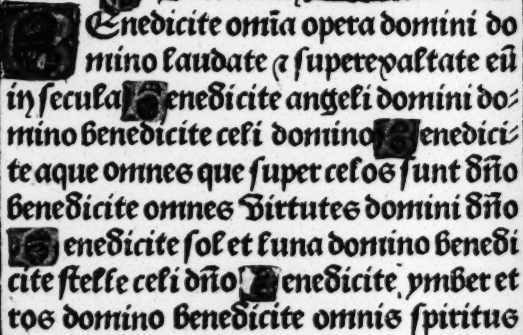 Benedicite om̄ia opera domini do
mino laudate ⁊ superexaltate eū
in secula Benedicite angeli domini do⸗
mino benedicite celi domino Benedici⸗
te aque omnes que super celos sunt dn̄o
benedicite omnes virtutes domini dn̄o
Benedicite sol et luna domino benedi
cite stelle celi dn̄o Benedicite ymber et
ros domino benedicite omnis spiritus